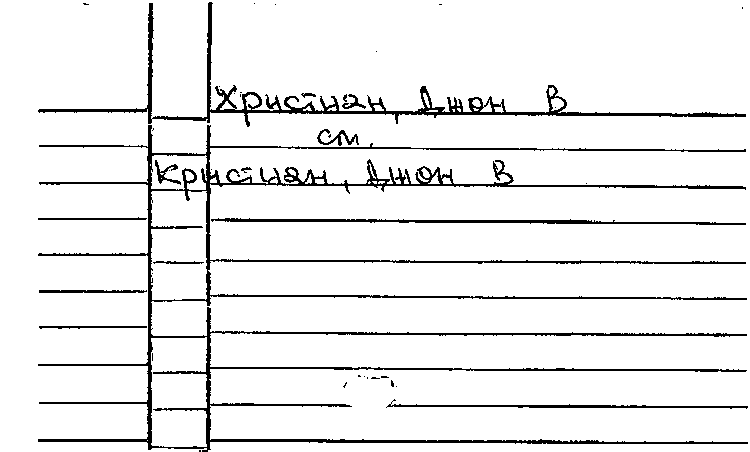 Христиан, Джон В
см.
Кристиан, Джон В